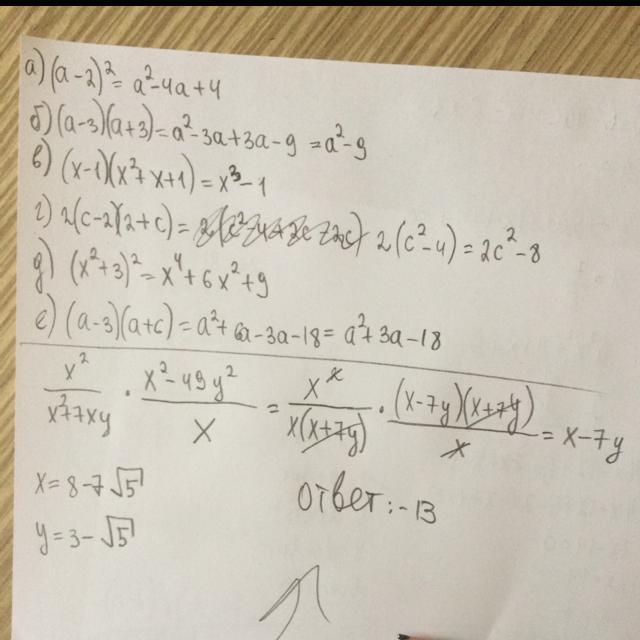 а) (a-2)² = a²-4a+4
б) (a-3)(a+3) = a²-3a+3a-9 = a²-9
в) (x-1)(x²+x+1) = x³-1
г) 2(c-2)(2+c) = 2(c²-4) = 2c²-8
д) (x²+3)² = x⁴+6x²+9
е) (a-3)(a+6) = a²+6a-3a-18 = a²+3a-18
x²/(x²+7xy) · (x²-49y²)/x = x²/(x(x+7y)) · ((x-7y)(x+7y))/x = x-7y
x = 8-7√5
y = 3-√5
Ответ: -13